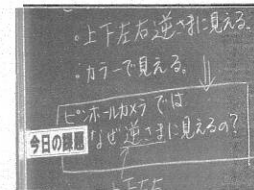 ・上下左右逆さまに見える。
・カラーで見える。
ピンホールカメラでは
なぜ逆さまに見えるの?
今日の課題
上下左右